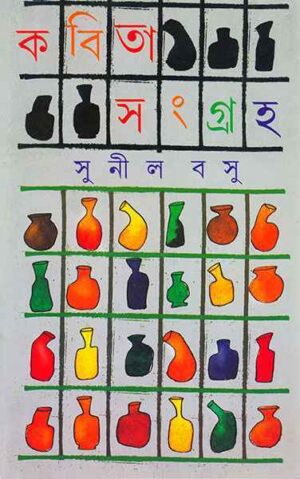 কবিতা
সংগ্রহ
সুনীল বসু